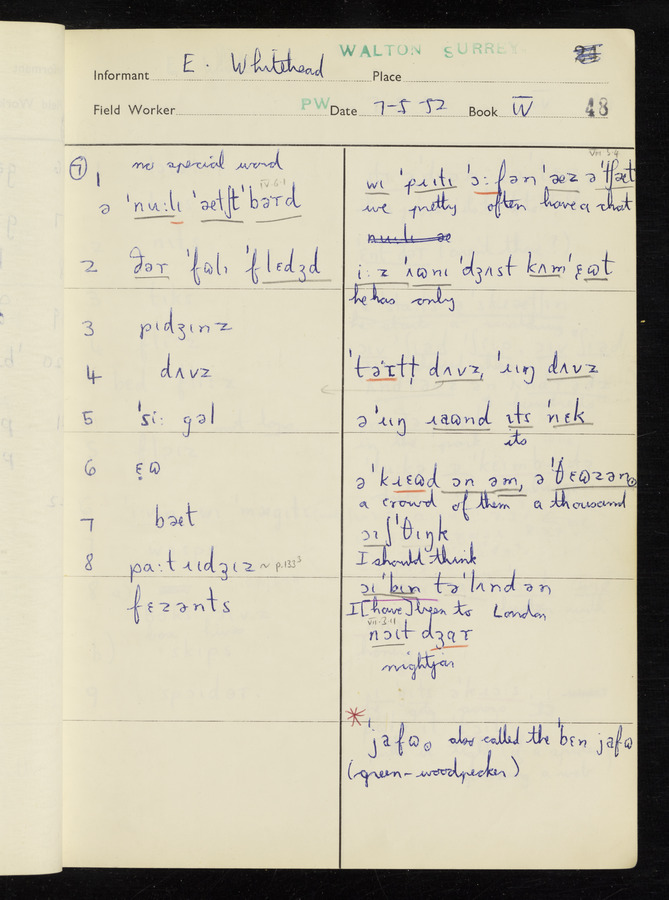 WALTON SURREY
Informant E. Whitehead Place
Field Worker PW Date 7-5 52 Book IV 48
⑦ 1 no special word
ə ˈnu:lɪ ˈætʃt ˈbəɾd
2 ðəɾ ˈfʊlɪ ˈflɛdʒd
3 pɪdʒɪnz
4 dʌvz
5 ˈsi: gəl
6 ɛ̣ʊ
7 bæt
8 pɑ:tɹɪdʒɪz ~ p.133³
fɛzənts
VII 3.4
wɪ ˈpɹɪtɪ ˈɔ:fən ˈæz ə ˈtʃæt
we pretty often have a chat
i:z ˈʌʊnɪ ˈdʒʌst kʌm ˈɛʊt
he has only
ˈtəɾtɫ dʌvz, ˈɹɪŋ dʌvz
ə ˈɹɪŋ ɹaʊnd ɪts ˈnɛk
its
ə ˈkɹɛʊd ən əm, ə ˈθɛʊzən
a crowd of them a thousand
ɔɪ ʃ ˈθɪŋk
I should think
ɔɪ ˈbɪn tə ˈlʌndən
I [have] been to London
VII.3.11
nɔɪt dʒɑɾ
nightjar
* ˈjafʊ. also called the ˈbɛn jafʊ
(green-woodpecker)